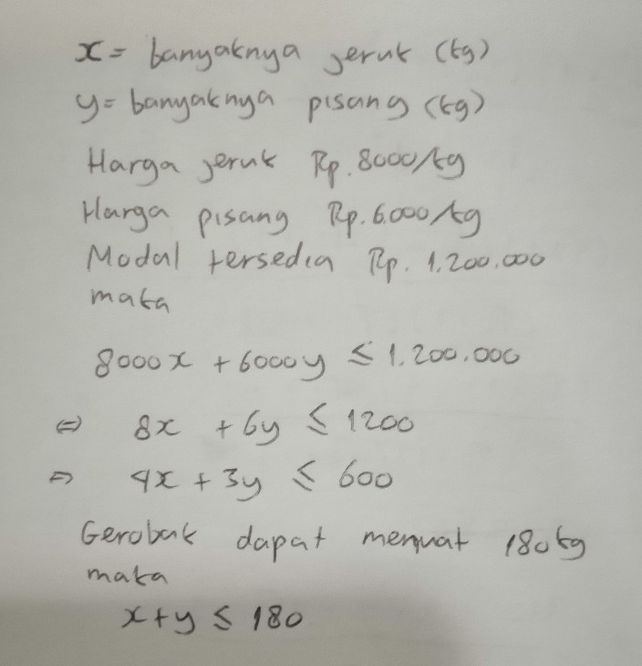 x = banyaknya jeruk (kg)
y = banyaknya pisang (kg)
Harga jeruk Rp. 8000/kg
Harga pisang Rp. 6.000/kg
Modal tersedia Rp. 1.200.000
maka
8000x + 6000y ≤ 1.200.000
⇔ 8x + 6y ≤ 1200
⇔ 4x + 3y ≤ 600
Gerobak dapat memuat 180 kg
maka
x + y ≤ 180